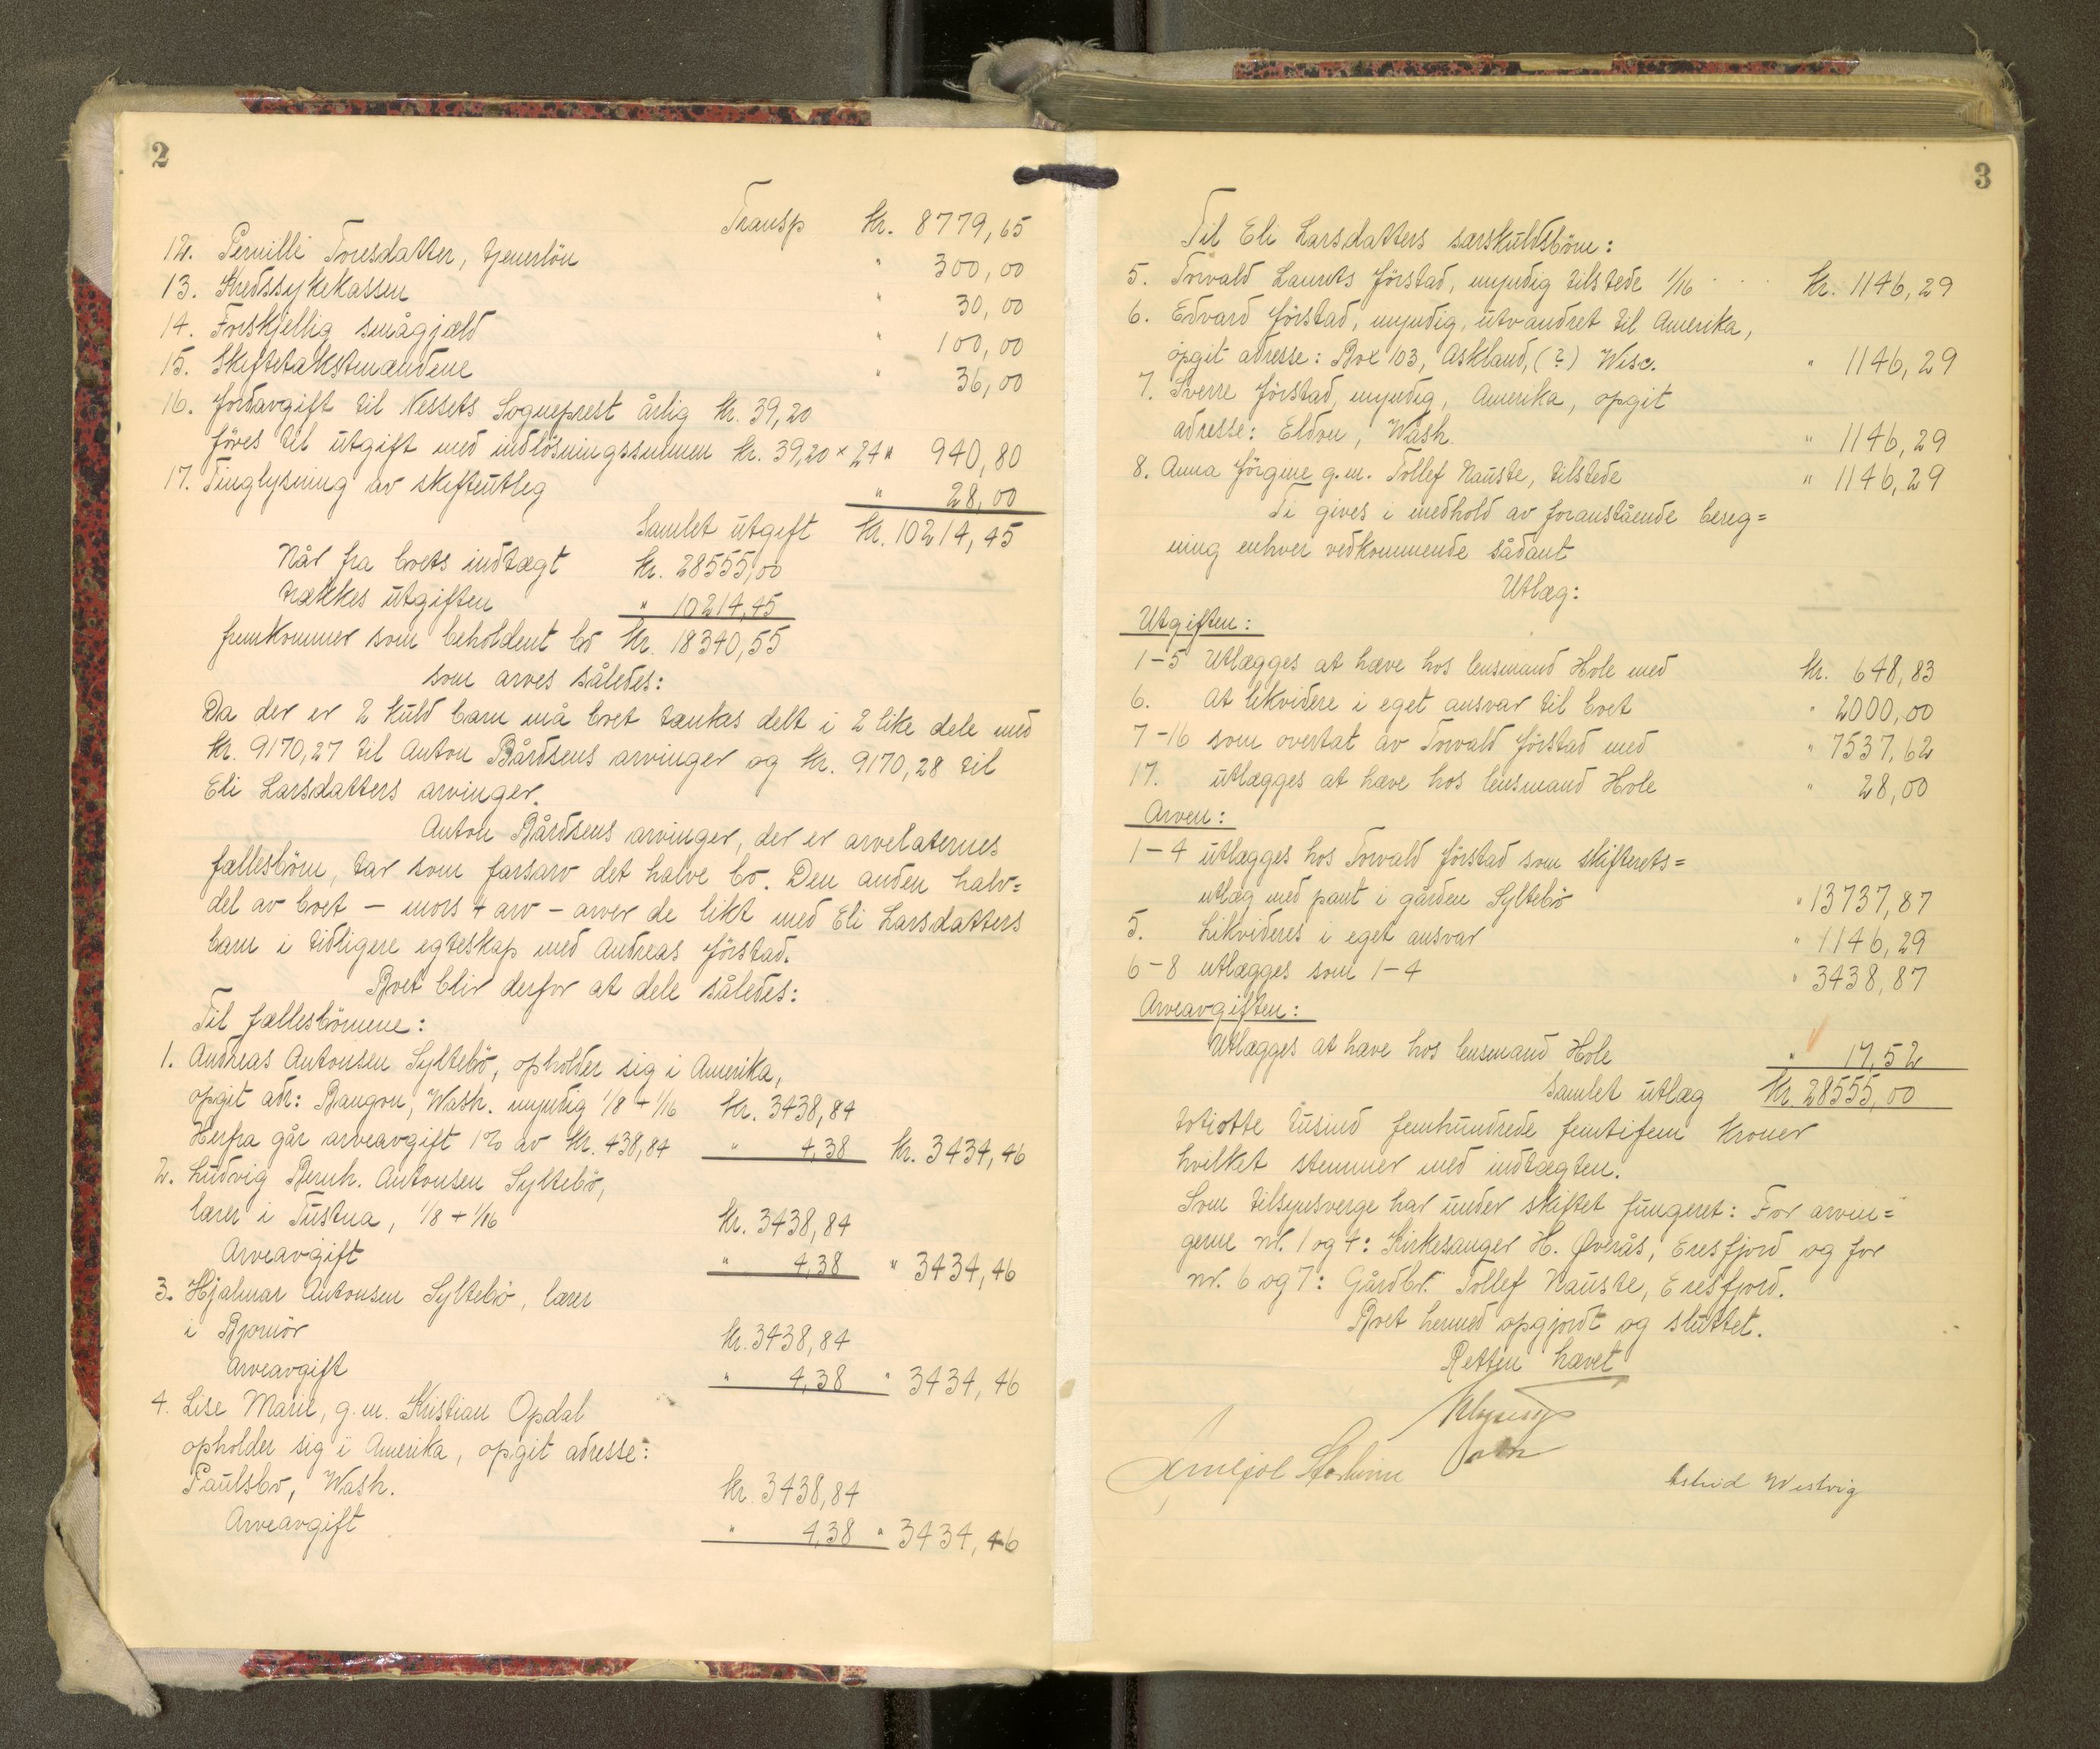 2
Transp Kr. 8779,65
12. Pernilli Toresdatter, tjenerlön " 300,00
13. Kredssykekassen " 30,00
14. Forskjellig smågjæld " 100,00
15. Skiftetakstmændene " 36,00
16. Jordavgift til Nessets Sogneprest årlig kr. 39,20
föres til utgift med indlösningssummen kr. 39,20 × 24 " 940,80
17. Tinglysning av skifteutleg " 28,00
Samlet utgift Kr. 10214,45
Når fra boets indtægt kr. 28555,00
trækkes utgiften " 10214,45
fremkommer som beholdent bo kr. 18340,55
som arves således:
Da der er 2 kuld barn må boet tænkes delt i 2 like dele med
kr. 9170,27 til Anton Bårdsens arvinger og kr. 9170,28 til
Eli Larsdatters arvinger.
Anton Bårdsens arvinger, der er arvelaternes
fællesbörn, tar som farsarv det halve bo. Den anden halv=
del av boet – mors arv – arver de likt med Eli Larsdatters
barn i tidligere egteskap med Andreas Jörstad.
Boet blir derfor at dele således:
Til fællesbörnene:
1. Andreas Antonsen Syltebö, opholder sig i Amerika,
opgit adr: Bangor, Wash. myndig 1/8 + 1/16 kr. 3438,84
Herfra går arveavgift 1% av kr. 438,84 " 4,38 kr. 3434,46
2. Ludvig Bernh. Antonsen Syltebö,
lærer i Tustna, 1/8 + 1/16 kr. 3438,84
Arveavgift " 4,38 " 3434,46
3. Hjalmar Antonsen Syltebö, lærer
i Bjornör kr. 3438,84
Arveavgift " 4,38 " 3434,46
4. Lise Marie, g.m. Kristian Opdal
opholder sig i Amerika, opgit adresse:
Paulsbo, Wash. kr. 3438,84
Arveavgift " 4,38 " 3434,46
3
Til Eli Larsdatters særskuldsbörn:
5. Torvald Laurits Jörstad, myndig tilstede 1/16 kr. 1146,29
6. Edvard Jörstad, myndig, utvandret til Amerika,
opgit adresse: Box 103, Askland, (?) Wisc. " 1146,29
7. Sverre Jörstad, myndig, Amerika, opgit
adresse: Eldon, Wash. " 1146,29
8. Anna Jörgine g.m. Tollef Nauste, tilstede " 1146,29
Ti gives i medhold av foranstående bereg=
ning enhver vedkommende sådant
Utlæg:
Utgiften:
1–5 Utlægges at hæve hos lensmand Hole med kr. 648,83
6. At likvidere i eget ansvar til boet " 2000,00
7–16 som overtat av Torvald Jörstad med " 7537,62
17. utlægges at hæve hos lensmand Hole " 28,00
Arven:
1–4 utlægges hos Torvald Jörstad som skifterets=
utlæg med pant i gården Syltebö " 13737,87
5. Likvideres i eget ansvar " 1146,29
6–8 utlægges som 1–4 " 3438,87
Arveavgiften:
Utlægges at hæve hos lensmand Hole " 17,52
Samlet utlæg Kr. 28555,00
totiotte tusind femhundrede femtifem kroner
hvilket stemmer med indtægten.
Som tilsynsverge har under skiftet fungeret: For arvin=
gerne nr. 1 og 4: Kirkesanger H. Øverås, Eresfjord og for
nr. 6 og 7: Gårdbr. Tollef Nauste, Eresfjord.
Boet hermed opgjordt og sluttet.
Retten hævet
Astrid Westvig